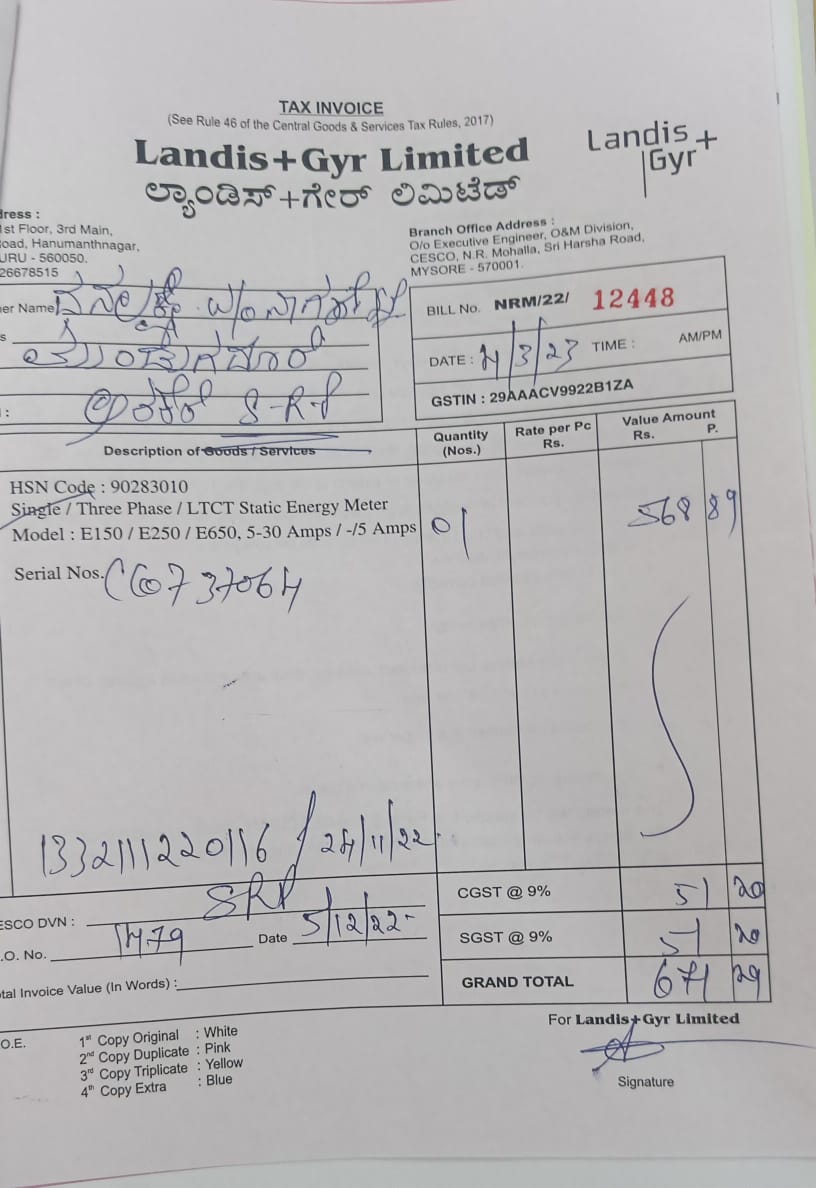 TAX INVOICE
(See Rule 46 of the Central Goods & Services Tax Rules, 2017)
Landis+Gyr Limited
ಲ್ಯಾಂಡಿಸ್+ಗೇರ್ ಲಿಮಿಟೆಡ್
Landis+
Gyr
dress :
1st Floor, 3rd Main,
oad, Hanumanthnagar,
URU - 560050.
26678515
Branch Office Address :
O/o Executive Engineer, O&M Division,
CESCO, N.R. Mohalla, Sri Harsha Road,
MYSORE - 570001.
er Name
s
:
S-R-P
BILL No. NRM/22/ 12448
DATE : 4/3/23 TIME : AM/PM
GSTIN : 29AAACV9922B1ZA
Description of Goods / Services
Quantity (Nos.)
Rate per Pc Rs.
Value Amount
Rs. P.
HSN Code : 90283010
Single / Three Phase / LTCT Static Energy Meter
Model : E150 / E250 / E650, 5-30 Amps / -/5 Amps 01 568 89
Serial Nos.
1332111220116 / 24/11/22
CGST @ 9% 51 20
ESCO DVN : SRP
SGST @ 9% 51 20
.O. No. 1479 Date 5/12/22
GRAND TOTAL 671 29
tal Invoice Value (In Words) :
For Landis+Gyr Limited
O.E.
1st Copy Original : White
2nd Copy Duplicate : Pink
3rd Copy Triplicate : Yellow
4th Copy Extra : Blue
Signature